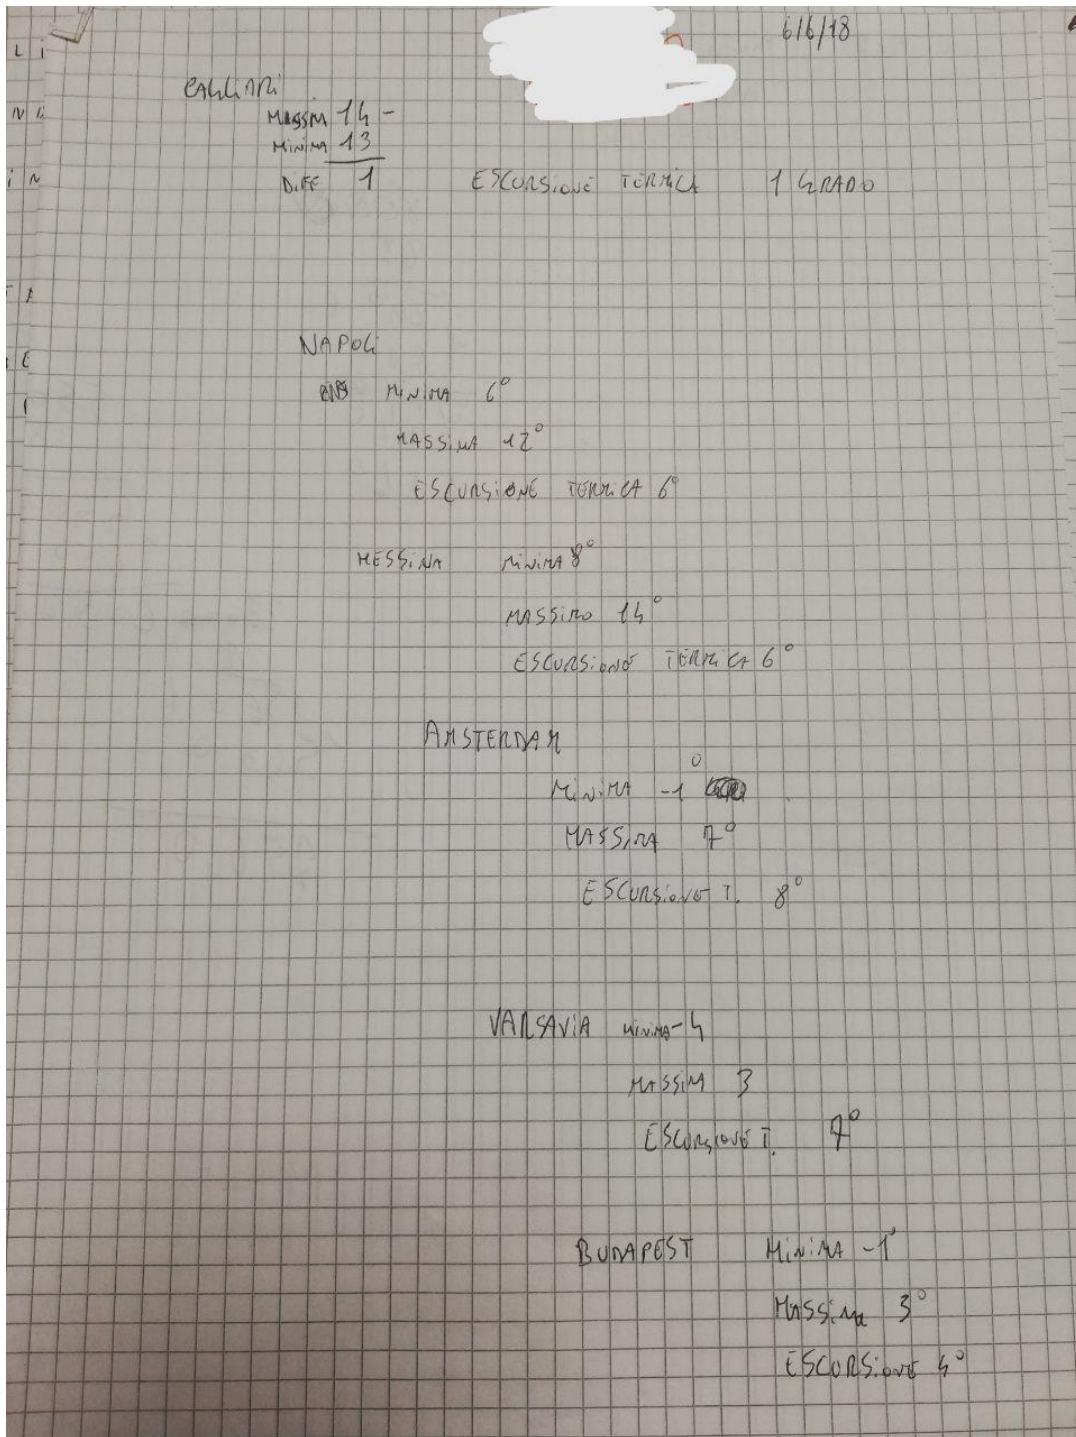 6/6/18
CAGLIARI
MASSIM 14 -
MINIMA 13
DIFF 1 ESCURSIONE TERMICA 1 GRADO
NAPOLI
MINIMA 6°
MASSIMA 12°
ESCURSIONE TERMICA 6°
MESSINA MINIMA 8°
MASSIMO 14°
ESCURSIONE TERMICA 6°
AMSTERDAM
MINIMA -1°
MASSIMA 7°
ESCURSIONE T. 8°
VARSAVIA MINIMA -4
MASSIM 3
ESCURSIONE T. 7°
BUDAPEST MINIMA -1°
MASSIMA 3°
ESCURSIONE 4°